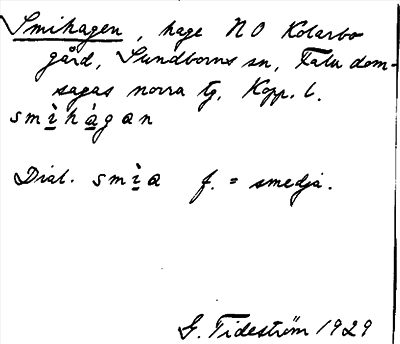 Smihagen, hage NO Kolarbo
gård, Sundborns sn, Falu dom-
sagas norra tg, Kopp. l.
smìhágan
Dial. smìa f. = smedja.
G. Tideström 1929